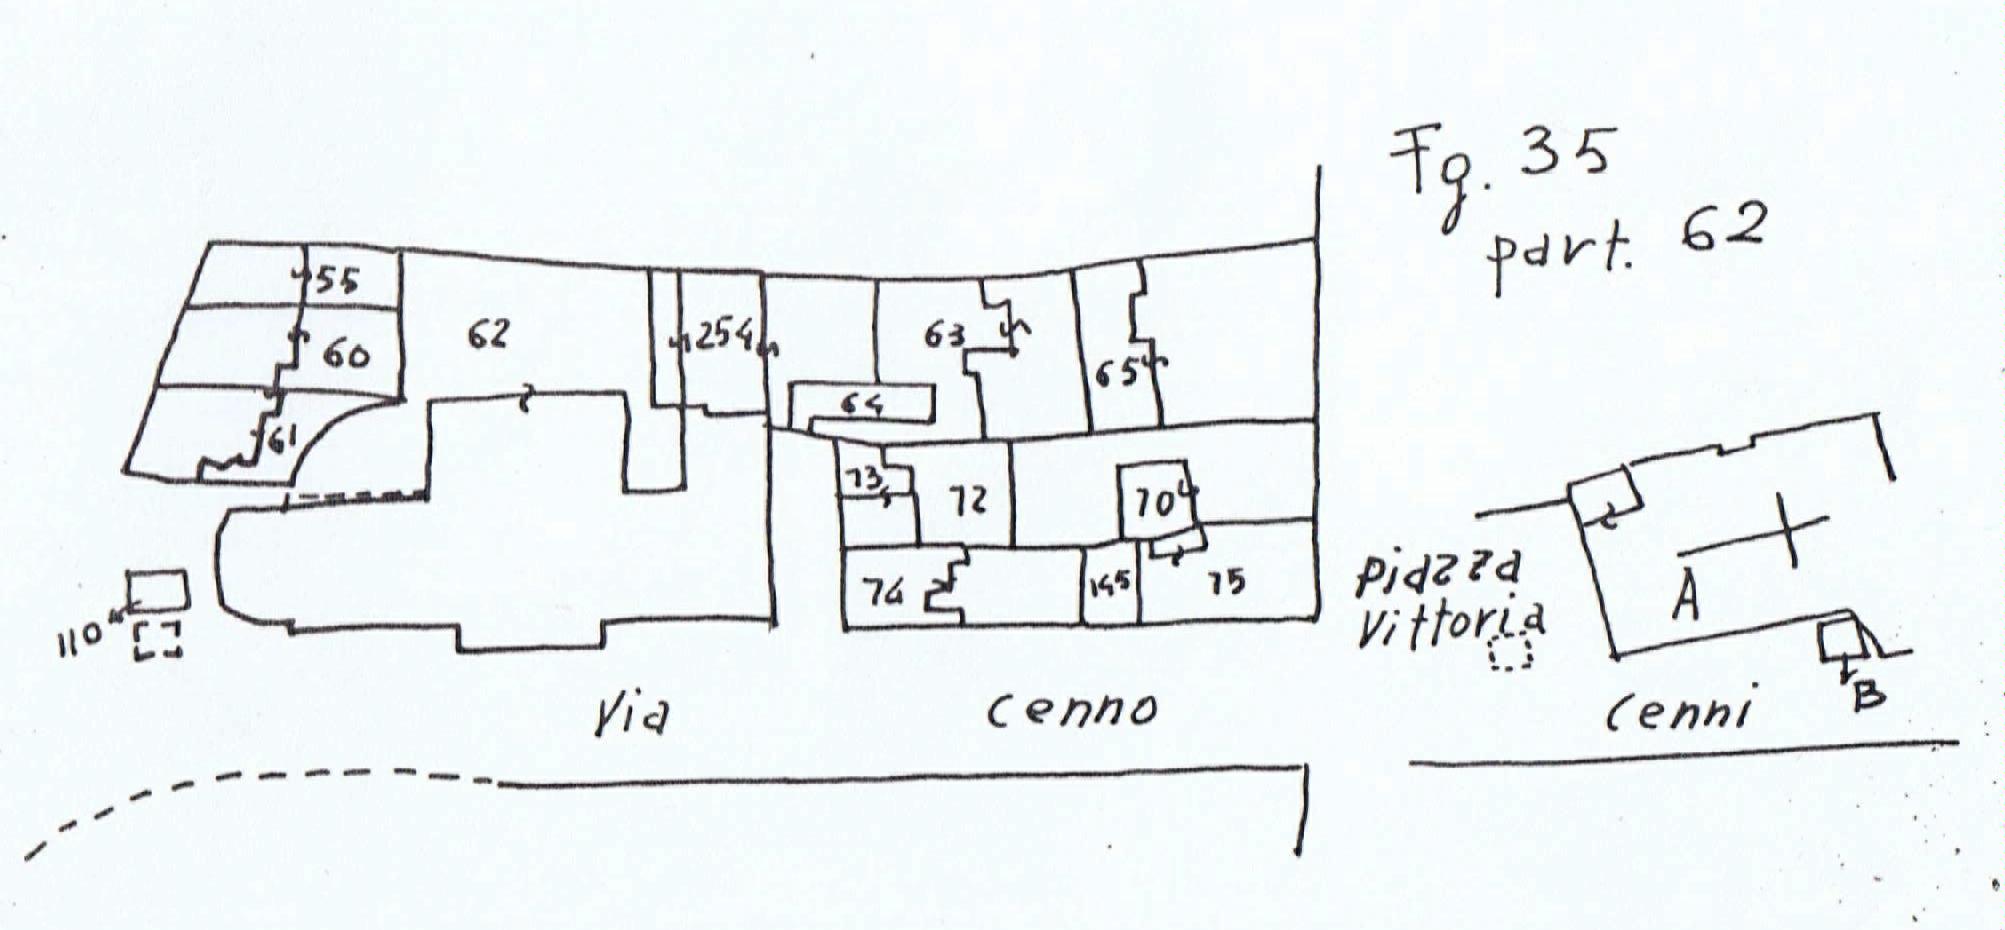 Fg. 35
part. 62
55
62
254
63
60
65
64
61
73
72
70
74
145
75
110
Piazza
Vittoria
A
B
Via Cenno Cenni